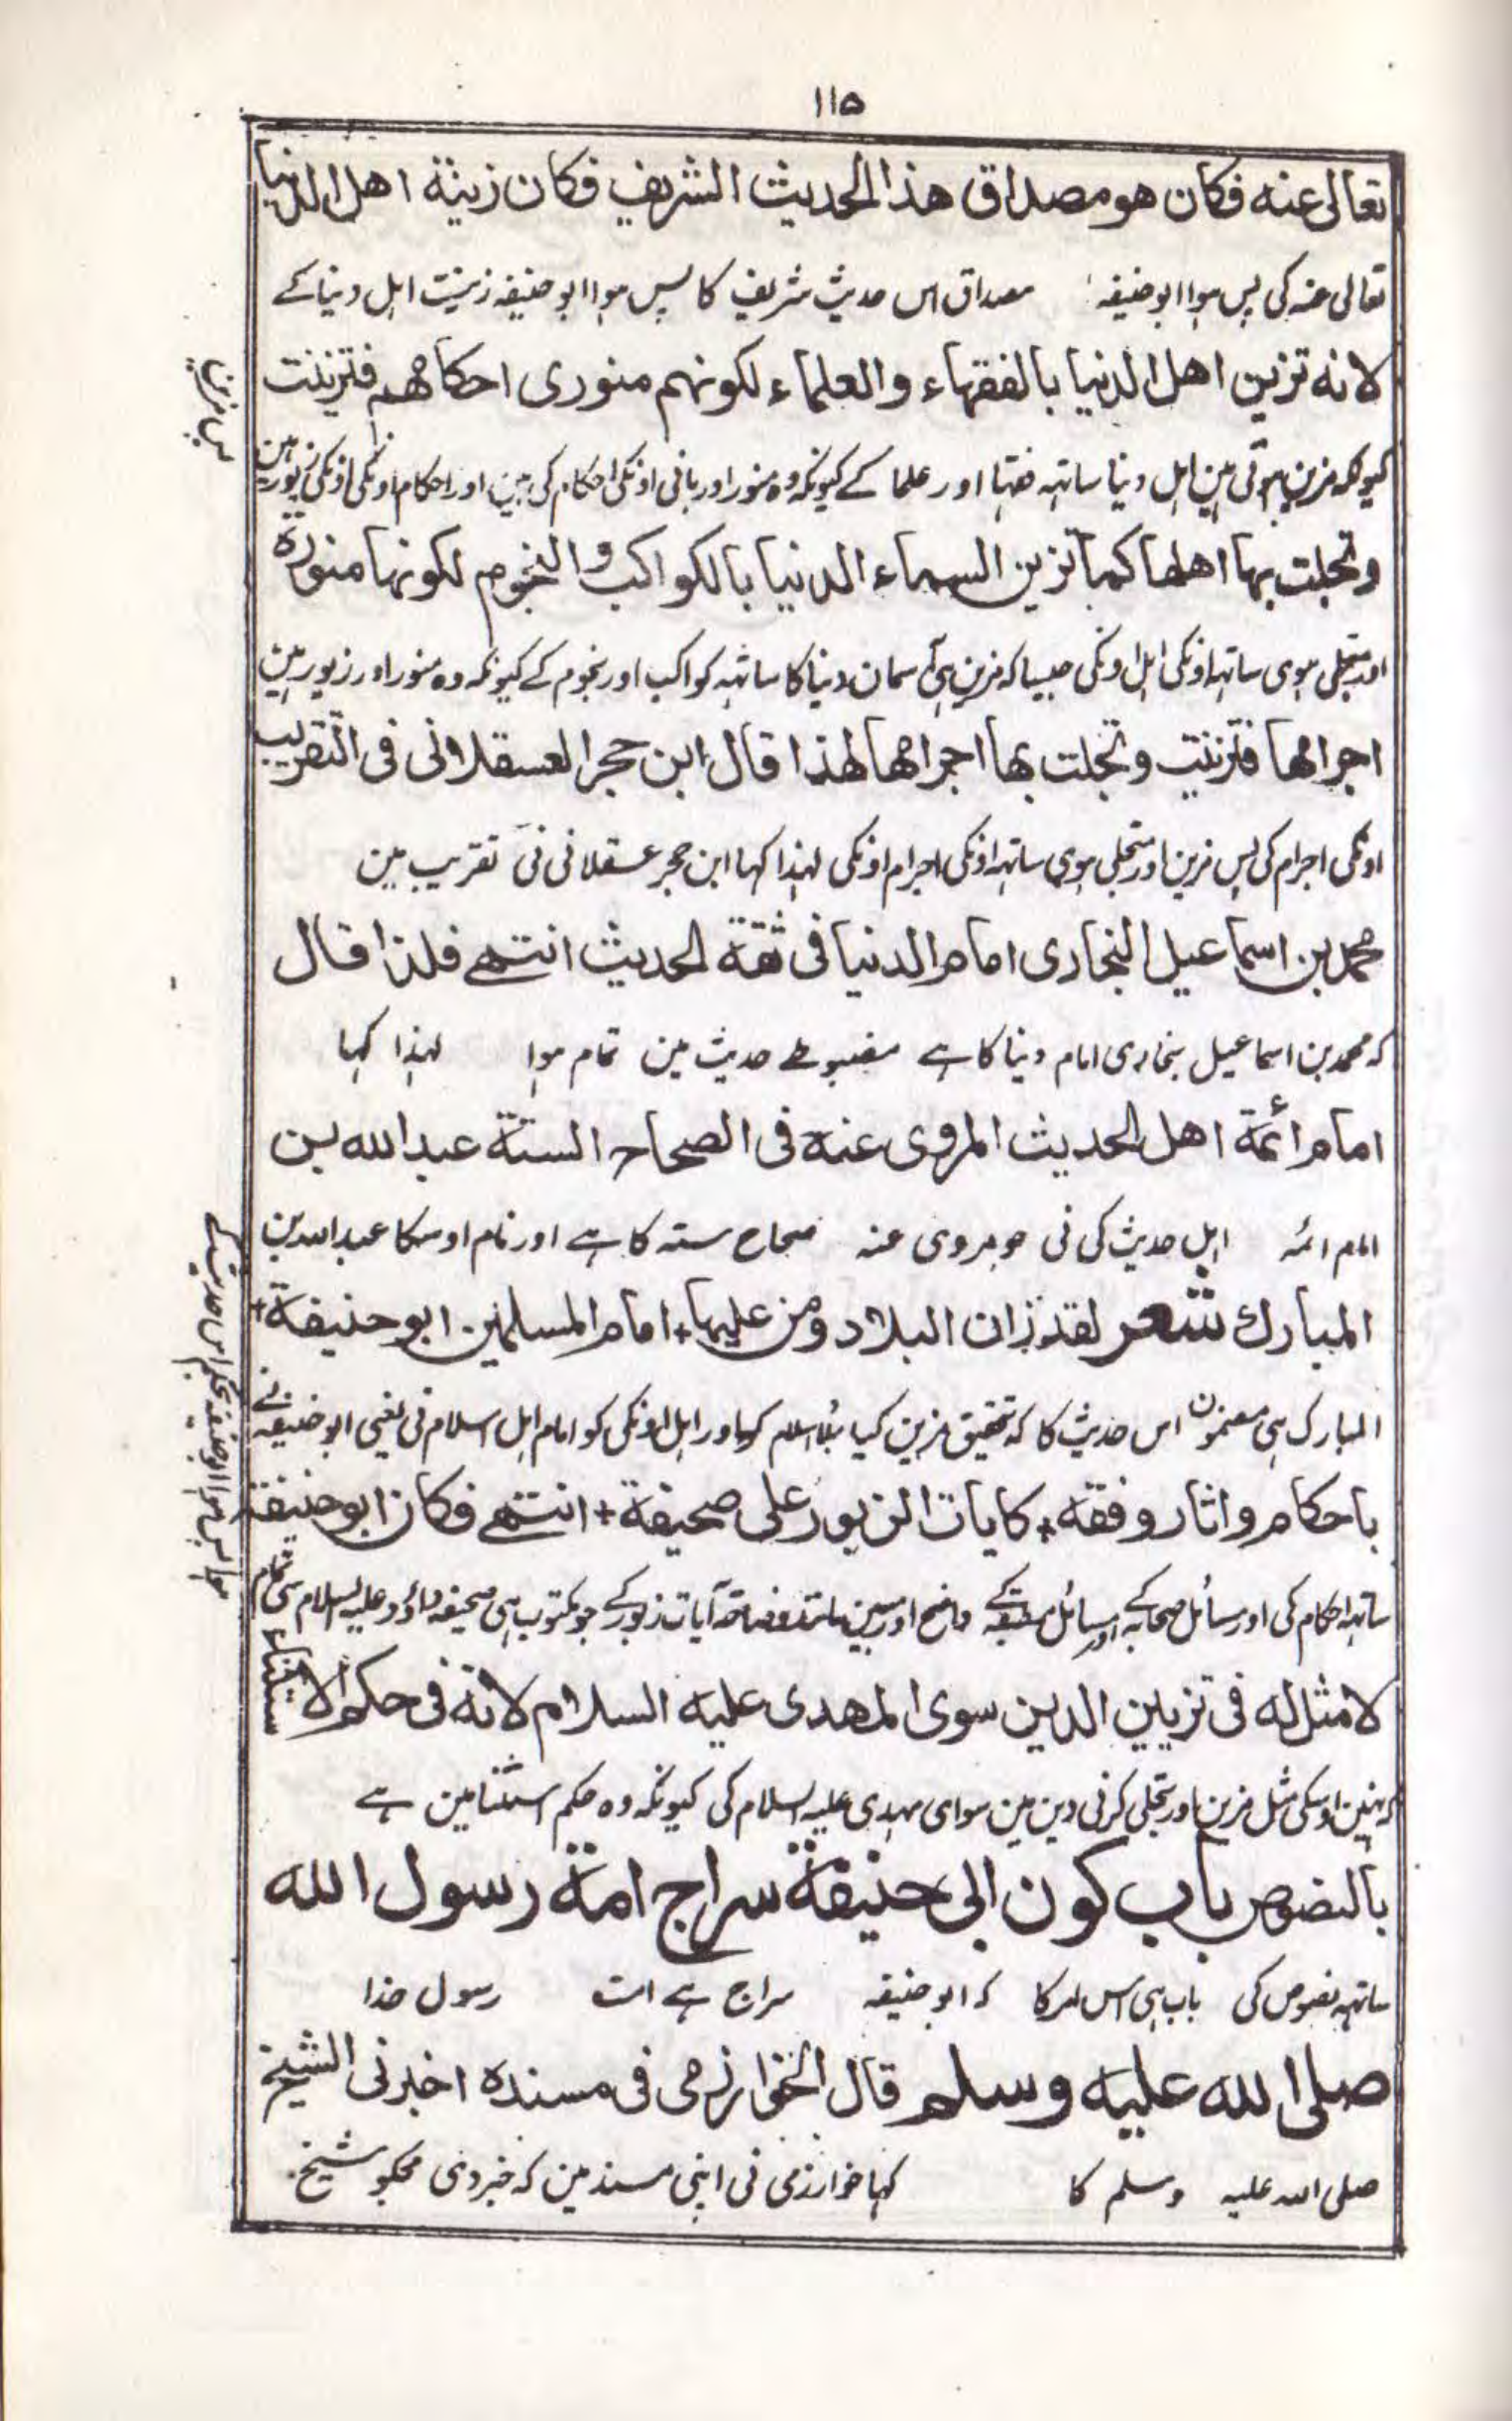 ١١٥
تعالی عنه فکان هو مصداق هذا الحدیث الشریف فکان زینة اهل الدنیا
تعالی عنہ کی پس ہوا ابو حنیفہ مصداق اس حدیث شریف کا پس ہوا ابو حنیفہ زینت اہل دنیا کے
لانه تزین اهل الدنیا بالفقهاء والعلماء لکونهم منوری احکامهم فتزینت
کیونکہ مزین ہوتی ہین اہل دنیا ساتہہ فقہا اور علما کے کیونکہ وہ منور اور بانی اونکی احکام کی ہین اور احکام اونکی اونکی زیور ہین
پس مزین
وتجلت بها اهلها کما تزین السماء الدنیا بالکواکب والنجوم لکونها منورة
اور متجلی ہوی ساتہہ اونکی اہل اونکی جیسا کہ مزین ہی آسمان دنیا کا ساتہہ کواکب اور نجوم کے کیونکہ وہ منور اور زیور ہین
اجرامها فتزینت وتجلت بها اجرامها لهذا قال ابن حجر العسقلانی فی التقریب
اونکی اجرام کی پس مزین اور متجلی ہوی ساتہہ اونکی اجرام اونکی لہذا کہا ابن حجر عسقلانی نی تقریب مین
محمد بن اسماعیل البخاری امام الدنیا فی ثقة الحدیث انتهی فلذا قال
کہ محمد بن اسماعیل بخاری امام دنیا کا ہے مضبوطے حدیث مین تمام ہوا لہذا کہا
امام ائمة اهل الحدیث المروی عنه فی الصحاح الستة عبد الله بن
امام ائمہ اہل حدیث کی نی جو مروی عنہ صحاح ستہ کا ہے اور نام اوسکا عبد اللہ بن
المبارك شعر لقد زان البلاد ومن علیها + امام المسلمین ابو حنیفة +
المبارک ہی مضمون اس حدیث کا کہ تحقیق مزین کیا بلاد اسلام کو اور اہل اونکی کو امام اہل اسلام نی یعنی ابو حنیفہ نے
باحکام واثار وفقه + کایات الزبور علی صحیفة + انتهی فکان ابو حنیفة
ساتہہ احکام کی اور مسائل صحابہ کے اور مسائل فقہ کے واضح اور مبین مانند آیات زبور کے جو مکتوب ہی صحیفہ داؤد علیہ السلام مین تمام
ہوا پس ہوا ابو حنیفہ بحکم اس حدیث کے
لا مثل له فی تزیین الدین سوی المهدی علیه السلام لانه فی حکم الاستثناء
کہ نہین اوسکی مثل مزین اور متجلی کرنی دین مین سوای مہدی علیہ السلام کی کیونکہ وہ حکم استثنا مین ہے
بالنصوص باب کون ابی حنیفة سراج امة رسول الله
ساتہہ نصوص کی باب ہی اس امر کا کہ ابو حنیفہ سراج ہے امت رسول خدا
صلی الله علیه وسلم قال الخوارزمی فی مسنده اخبرنی الشیخ
صلی اللہ علیہ وسلم کا کہا خوارزمی نی اپنی مسند مین کہ خبر دی مجکو شیخ